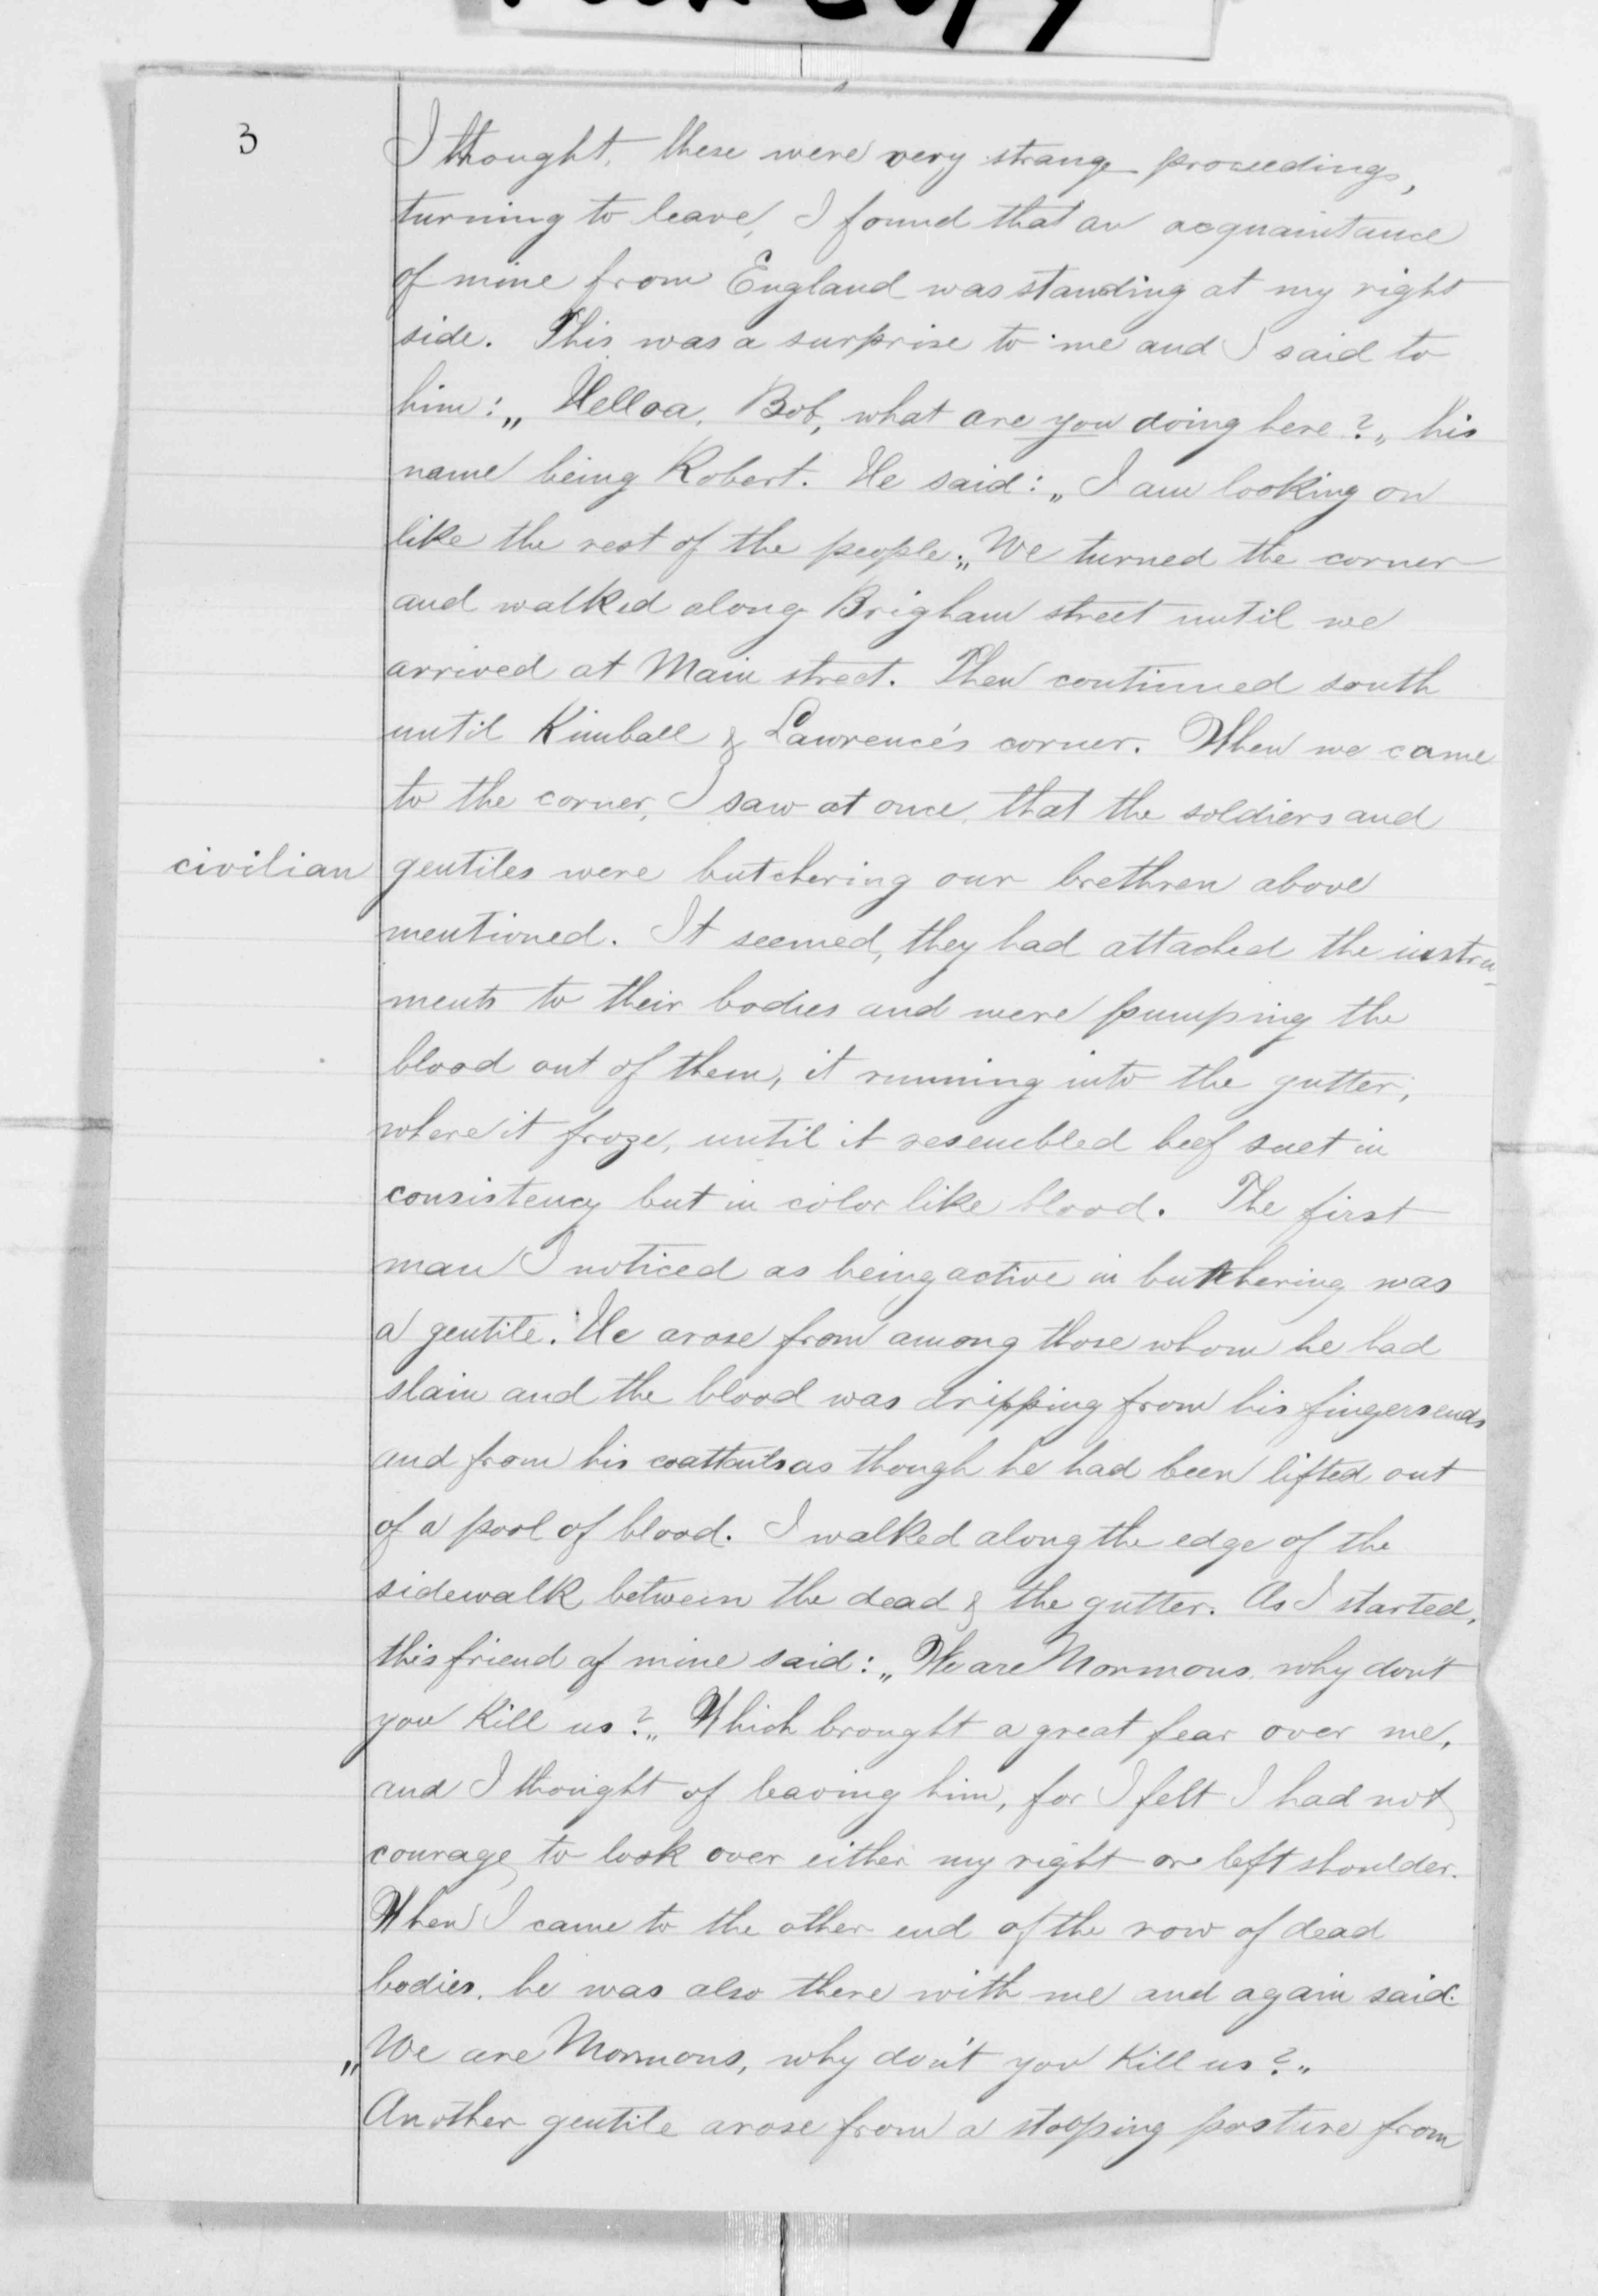 3
I thought, these were very strange proceedings,
turning to leave, I found that an acquaintance
of mine from England was standing at my right
side. This was a surprise to me and I said to
him: „Helloa, Bob, what are you doing here?„ his
name being Robert. He said: „I am looking on
like the rest of the people.„ We turned the corner
and walked along Brigham street until we
arrived at Main street. Then continued south
until Kimball & Lawrence's corner. When we came
to the corner, I saw at once, that the soldiers and
civilian gentiles were butchering our brethren above
mentioned. It seemed, they had attached the instru-
ments to their bodies and were pumping the
blood out of them, it running into the gutter,
where it froze, until it resembled beef suet in
consistency but in color like blood. The first
man I noticed as being active in butchering was
a gentile. He arose from among those whom he had
slain and the blood was dripping from his fingersends
and from his coattails as though he had been lifted out
of a pool of blood. I walked along the edge of the
sidewalk between the dead & the gutter. As I started,
this friend of mine said: „We are Mormons, why don't
you kill us?„ Which brought a great fear over me,
and I thought of leaving him, for I felt I had not
courage to look over either my right or left shoulder.
When I came to the other end of the row of dead
bodies, he was also there with me and again said:
„We are Mormons, why don't you kill us?„
Another gentile arose from a stooping posture from